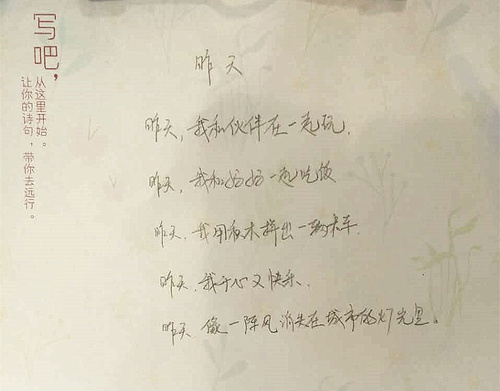 写吧，
从这里开始。
让你的诗句，带你去远行。
昨天
昨天，我和伙伴在一起玩，
昨天，我和妈妈一起吃饭
昨天，我用积木拼出一辆卡车，
昨天，我开心又快乐，
昨天 像一阵风 消失在城市的灯光里。